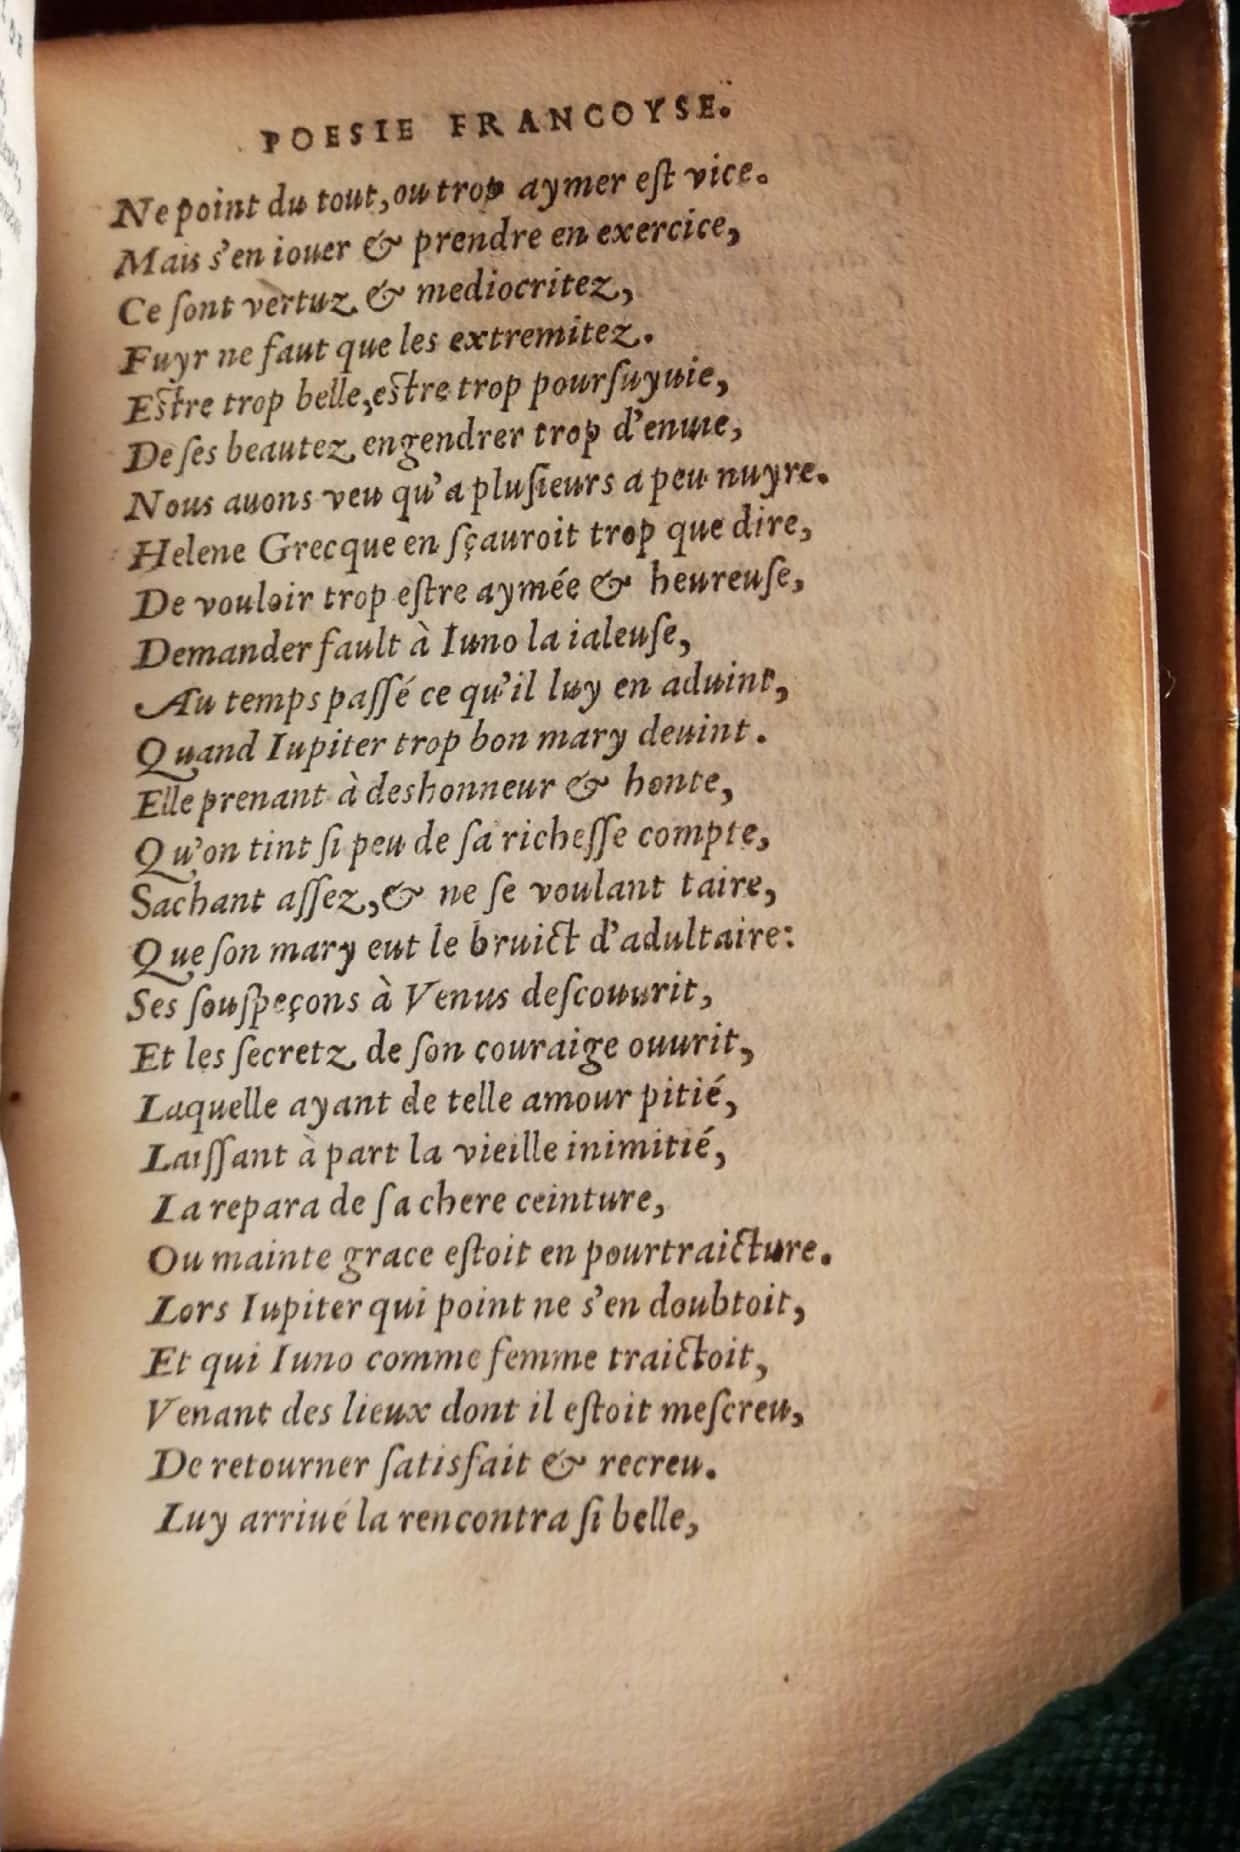 POESIE FRANCOYSE.
Ne point du tout, ou trop aymer eſt vice.
Mais s'en iouer & prendre en exercice,
Ce ſont vertuz & mediocritez,
Fuyr ne faut que les extremitez.
Eſtre trop belle, eſtre trop pourſuyuie,
De ſes beautez engendrer trop d'enuie,
Nous auons veu qu'a pluſieurs a peu nuyre.
Helene Grecque en ſçauroit trop que dire,
De vouloir trop eſtre aymée & heureuſe,
Demander fault à Iuno la ialeuſe,
Au temps paſſé ce qu'il luy en aduint,
Quand Iupiter trop bon mary deuint.
Elle prenant à deshonneur & honte,
Qu'on tint ſi peu de ſa richeſſe compte,
Sachant aſſez, & ne ſe voulant taire,
Que ſon mary eut le bruict d'adultaire:
Ses ſouſpeçons à Venus deſcouurit,
Et les ſecretz de ſon couraige ouurit,
Laquelle ayant de telle amour pitié,
Laiſſant à part la vieille inimitié,
La repara de ſa chere ceinture,
Ou mainte grace eſtoit en pourtraicture.
Lors Iupiter qui point ne s'en doubtoit,
Et qui Iuno comme femme traictoit,
Venant des lieux dont il eſtoit meſcreu,
De retourner ſatisfait & recreu.
Luy arriué la rencontra ſi belle,